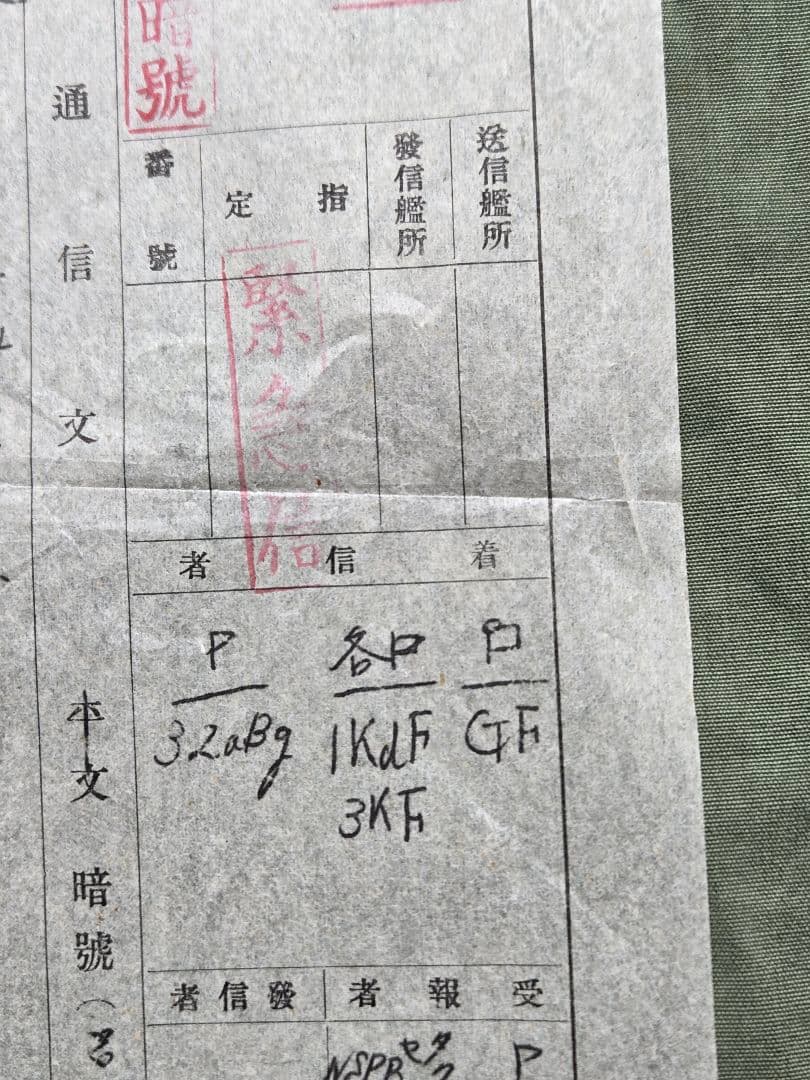 暗號
送信艦所
發信艦所
指定
番號
緊急信
着信者
口
GF
各口
1KdF
3KF
P
3.2aBg
受報者
發信者
P
NSPB
セタ
通信文
本文暗號(